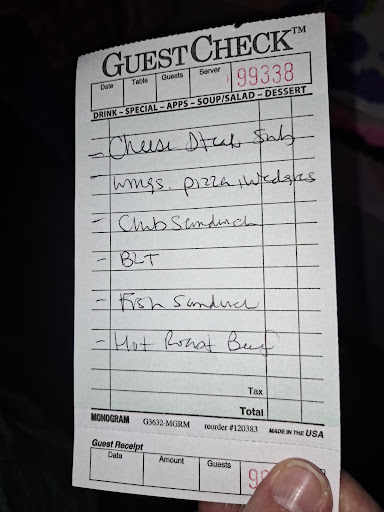 GUEST CHECK™
Date Table Guests Server 99338
DRINK – SPECIAL – APPS – SOUP/SALAD – DESSERT
– Cheese Steak Sub
– Wings, pizza, wedgies
– Club Sandwich
– BLT
– Fish Sandwich
– Hot Roast Beef
Tax
Total
MONOGRAM G3632-MGRM reorder #120383 MADE IN THE USA
Guest Receipt
Date Amount Guests